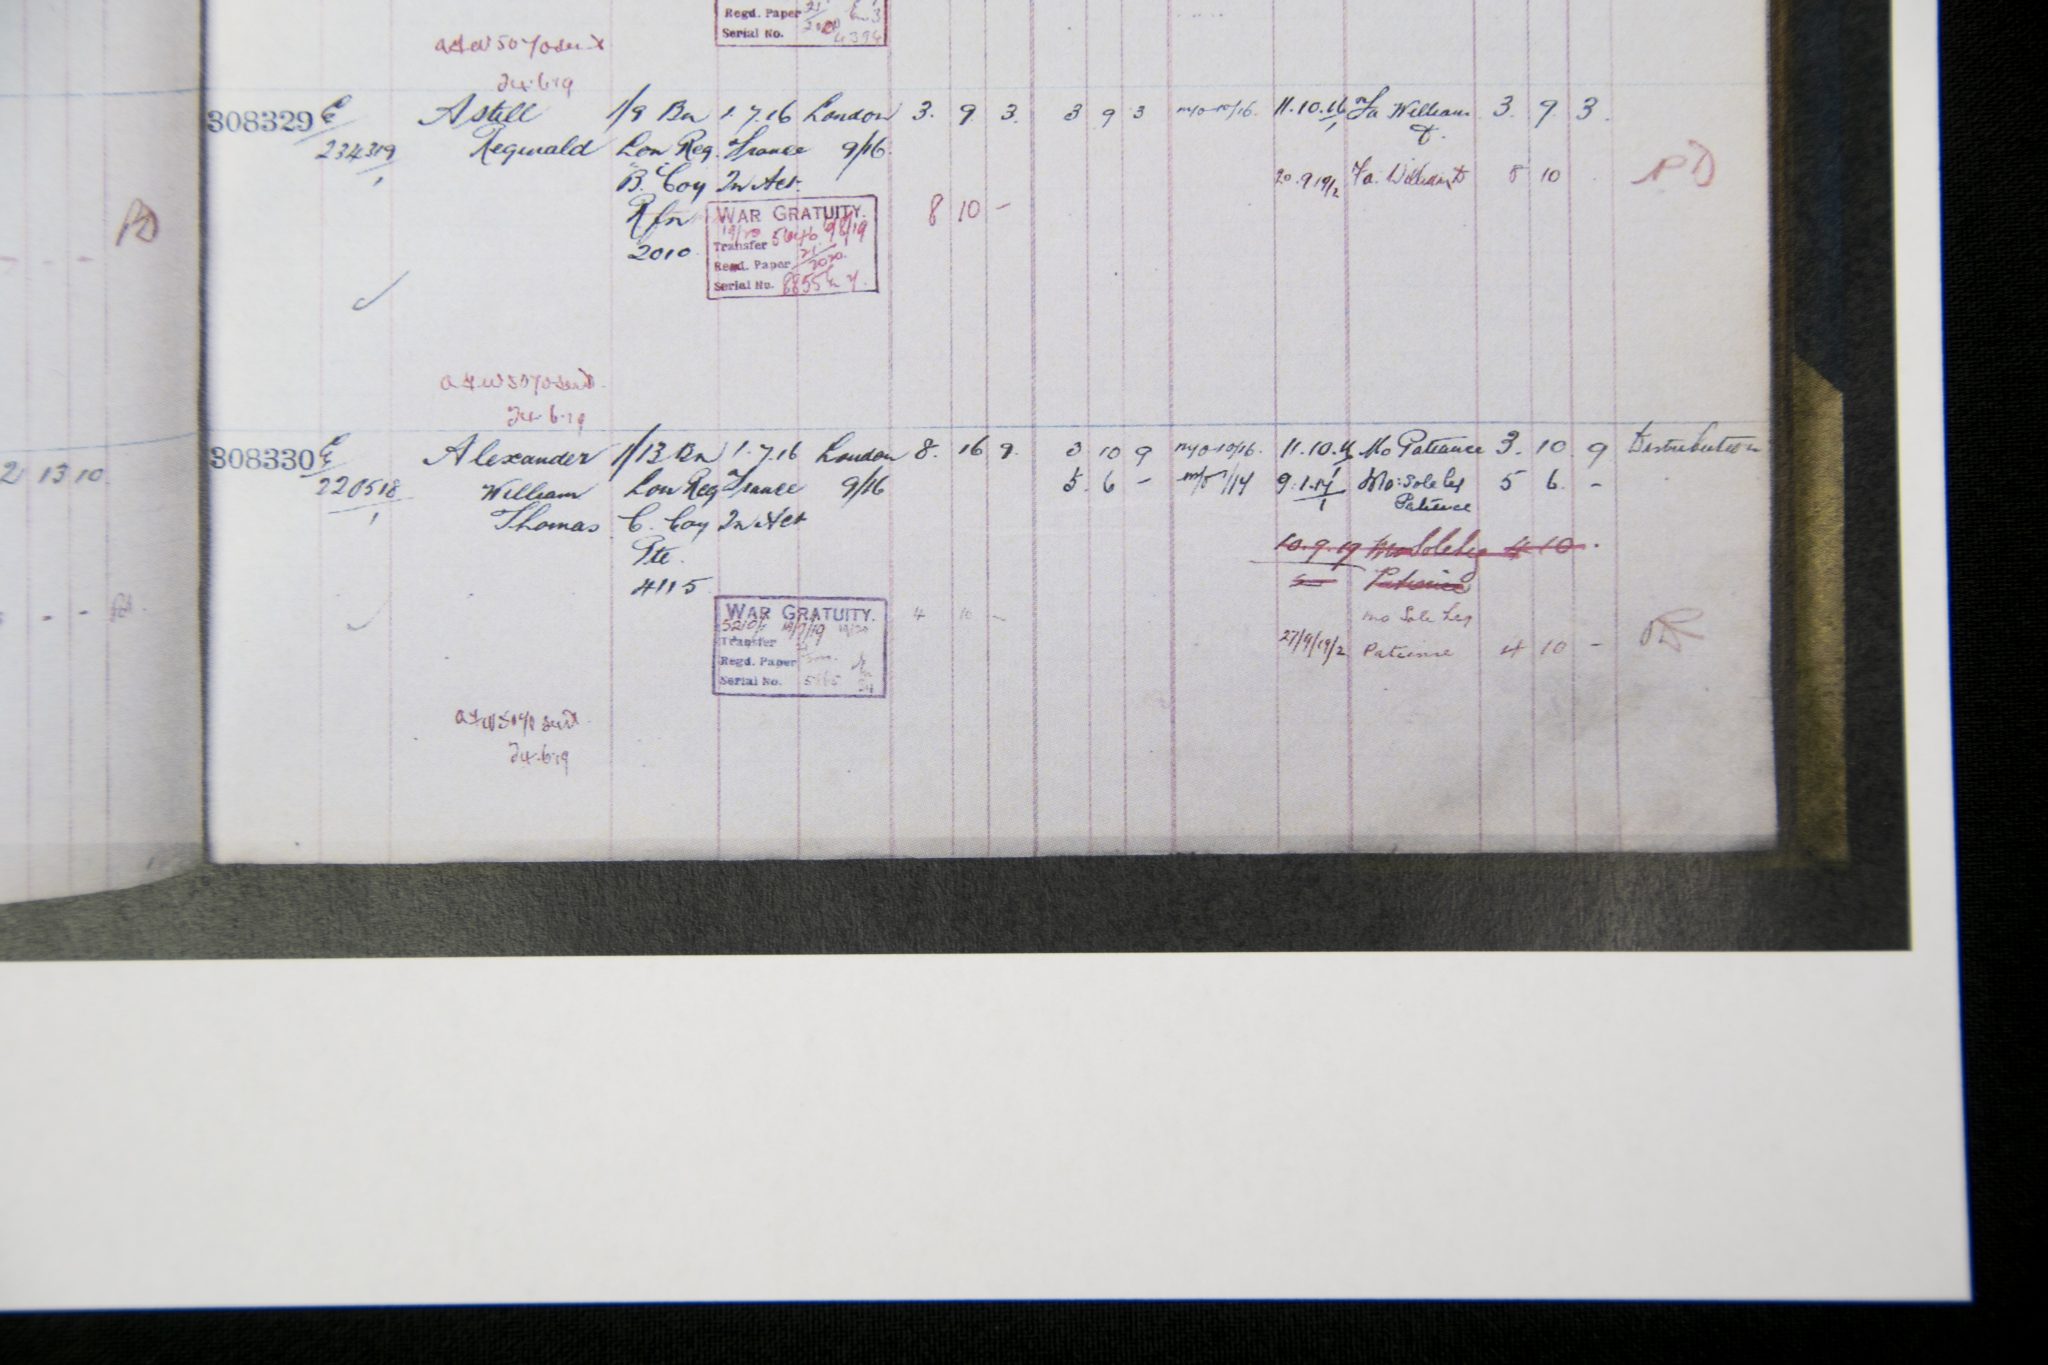 Regd. Paper 21/2020
Serial No. 4394
24.6.19
308329 E Astill 1/9 Bn 1.7.16 London 3. 9. 3. 3 9 3 11.10.16 Fa William 3. 9. 3.
234319/1 Reginald Lon Reg. France 9/16
"B" Coy In Act. 20.9.19/2 Fa. William 8 10
Rfn 8 10 -
2010
WAR GRATUITY.
Transfer
Regd. Paper 21/2020
Serial No.
PD
24.6.19
21 13 10
308330 E Alexander 1/13 Bn 1.7.16 London 8. 16 9. 3 10 9 11.10.16 Mo Patience 3. 10. 9 Distribution
220518/1 William Lon Reg France 9/16 5. 6 - 9.1.17/1 Mo: Sole Leg 5 6. -
Patience
Thomas C. Coy In Act
Pte. 10.9.19 Mo Sole Leg 4 10 -
4115 Patience
WAR GRATUITY. 4 10 -
Transfer
Regd. Paper
Serial No.
Mo Sole Leg
27/9/19/2 Patience 4 10 -
24.6.19